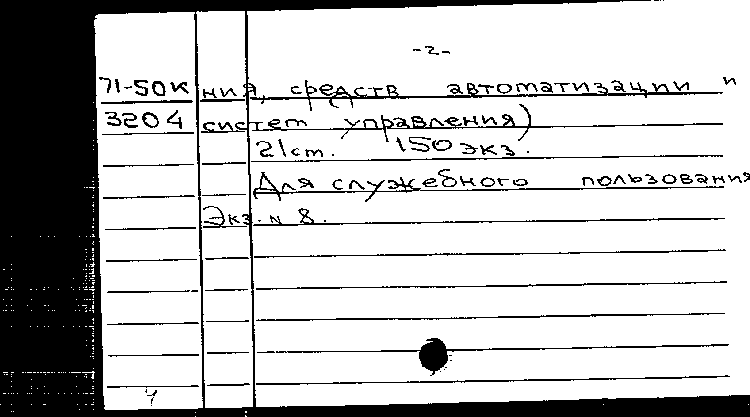 -2-
71-50к ния, средств автоматизации и
3204 систем управления)
21 ст. 150 экз.
Для служебного пользования
Экз. N 8.
4